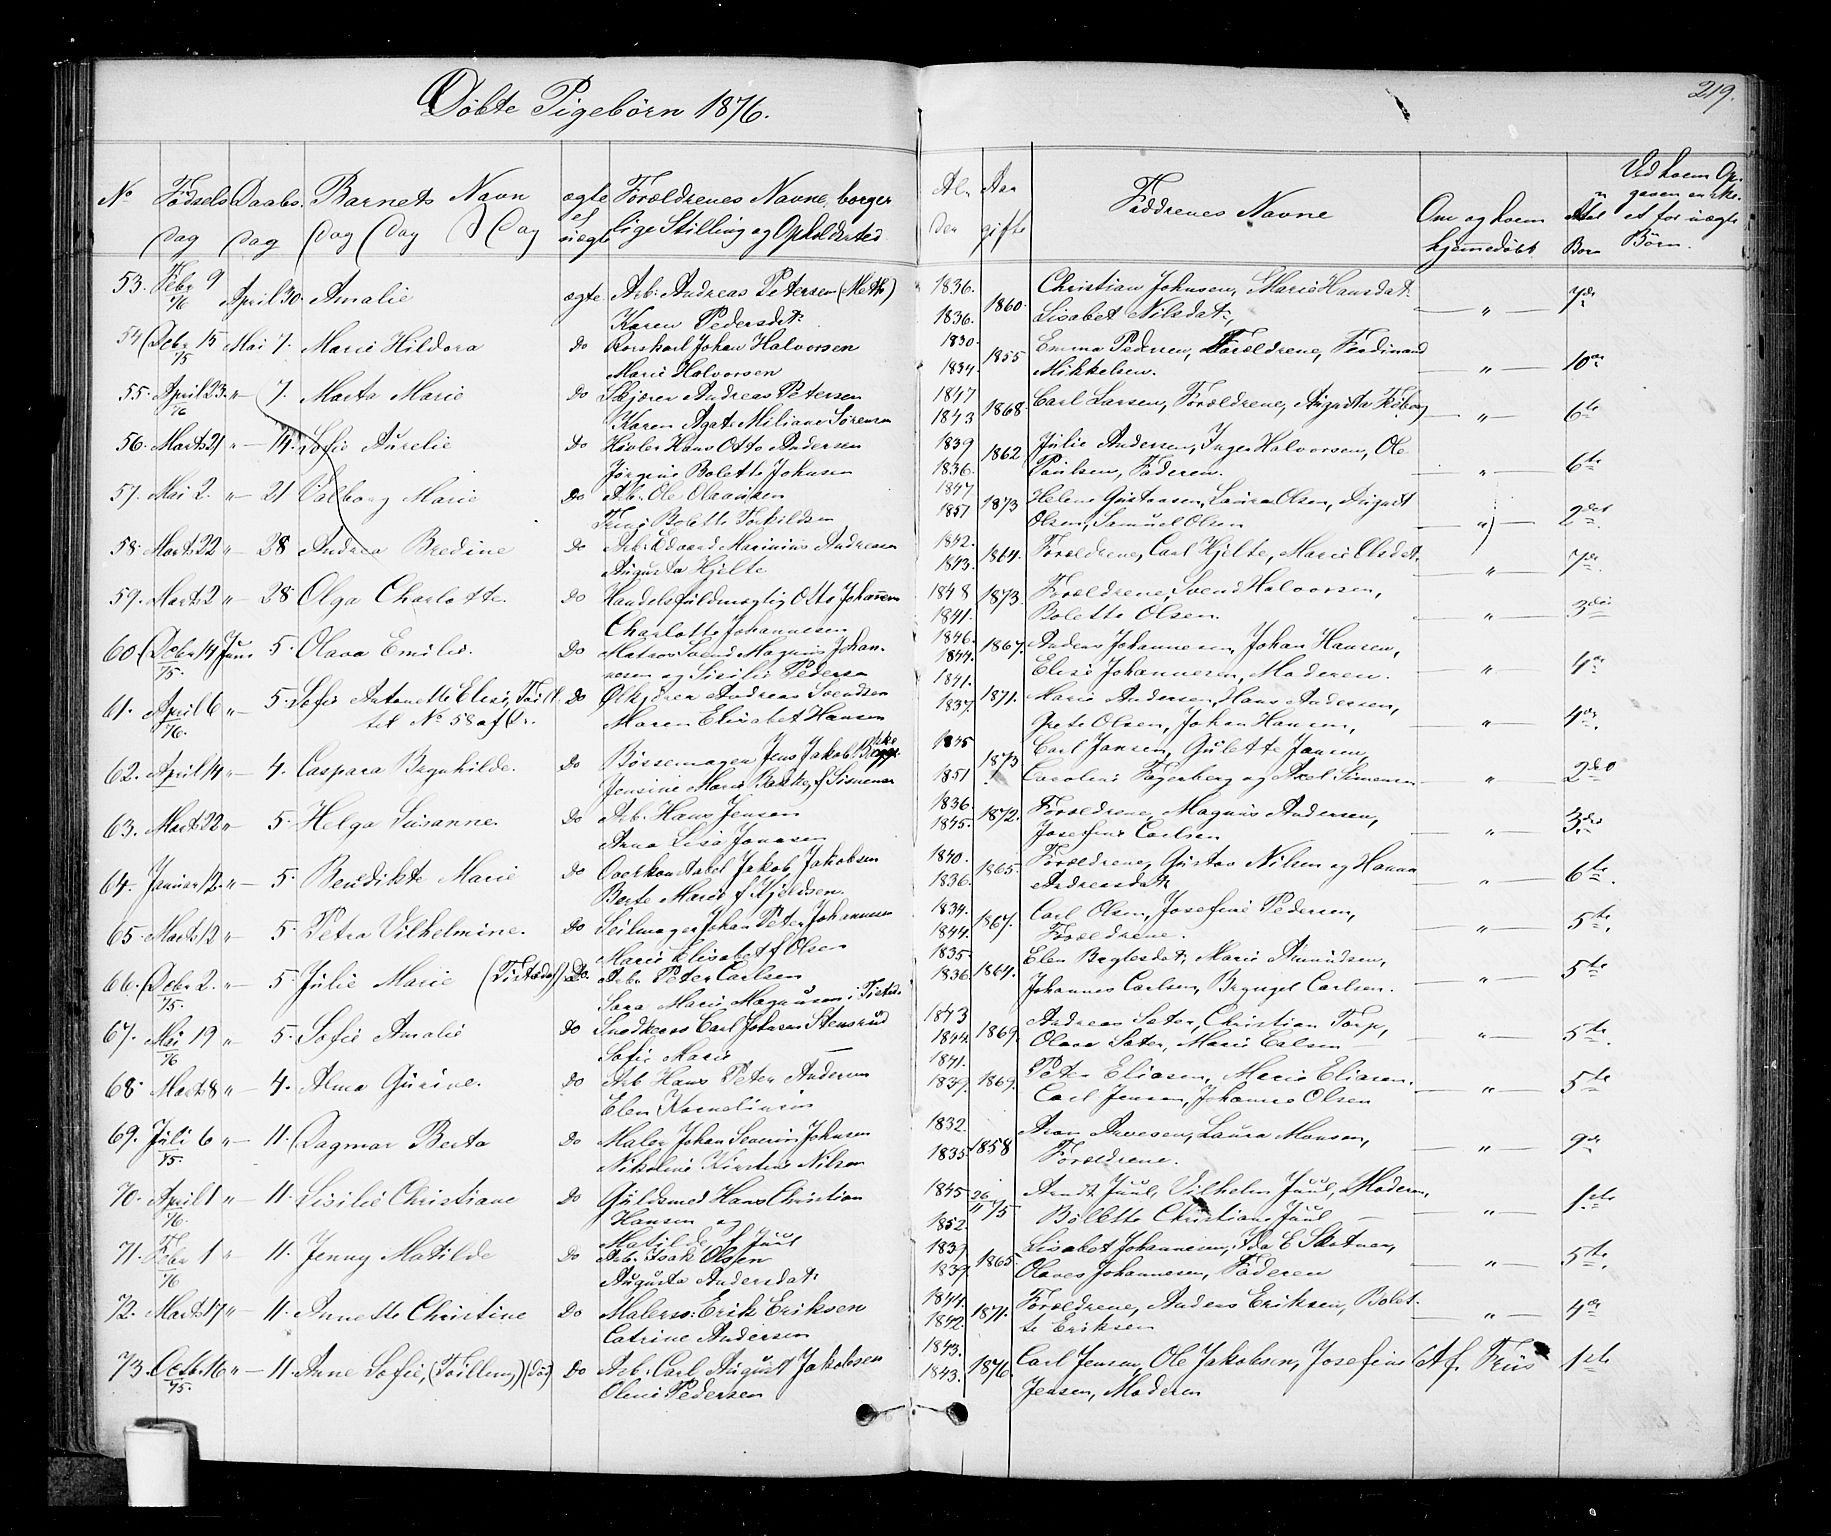 Døbte Pigebørn 1876.
219.
No Fødsels Daabs Barnets Navn ægte Forældrenes Navne, borger Al Aar Faddrenes Navne Om og hvem Ved hvem Op-
dag dag el uægte lige Stilling og Opholdsted der gifte hjemmedøbt Børn et for uægte
Børn.
53. Febr 9 76 April 30. Amalie ægte Arb. Andreas Petersen 1836. 1860. Christian Johnsen, Marie Hansdat: " 7de
Karen Pedersdt: 1836. Lisabet Nilsdat:,
54 Debr 15 75 Mai 7. Marie Hildora Do Johan Halvorsen 1830. 1855 Emma Pedersen, Forældrene, Ferdinand " 10de
Marie Halvorsen 1834. Mikkelsen.
55. April 23. 76 " 7. Marta Marie Do Andreas Petersen 1847 1868. Carl Larsen, Forældrene, Augusta " 6te
Karen Agate Miliane Sørensen 1843
56. Marts 21 " 14. Sofie Aurelie Do Høvler Hans Otto Andersen 1839 1862 Julie Andersen, Inger Halvorsen, Ole " 6te
Jørgine Bolette Johnsen 1836. Paulsen, Faderen.
57. Mai 2. " 21 Valborg Marie Do Arb. Ole 1847 1873 Helene Gustavsen, Laura Olsen, August " 2det
Trine Bolette Torkildsen 1851 Olsen, Samuel Olsen
58. Marts 22 " 28 Andrea Bredine Do Arb. Edvard Marinius Andersen 1842. 1864. Forældrene, Carl Hjelte, Marie Olsdat. " 7de
Augusta Hjelte 1843.
59. Marts 2 " 28 Olga Charlotte. Do Handelsfuldmægtig Otto Johannesen 1848 1873. Forældrene, Svend Halvorsen, " 3die
Charlotte Johannesen 1841. Bolette Olsen.
60 Debr 14 75. Juni 5. Olava Emilie. Do Matros Svend Magnus Johan- 1846. 1867. Anders Johannesen, Johan Hansen, " 4de
nesen og Sisilie Pedersen 1844. Elise Johannesen, Moderen.
61. April 6 76. " 5. Sofie Antonette Elise, Do Andreas Svendsen 1841. 1871. Marie Andersen, Hans Andersen, " 4de
No 58 af Maren Elisabet Hansen 1837. Grete Olsen, Johan Hansen,
62. April 14 " 4. Caspara Brynhilde. Do Bøssemager Jens Jakob 1845 1873 Carl Jansen, Gulette Jansen, " 2det
Jensine Marie Bakke f. Simensen 1851 Caroline Fagerberg og Axel Simensen
63. Marts 22 " 5. Helga Susanne. Do Arb. Hans Jensen 1836. 1872. Forældrene, Magnus Andersen, " 3die
Anna Lise Jonasen 1845. Josefine Carlsen
64. Januar 12. " 5. Bendikte Marie Do Overkonstabel Jakob Jakobsen 1840. 1865. Forældrene, Gustav Nilsen og Hanna " 6te.
Berte Marie f. Kjeldsen. 1836. Andreasdat:
65. Marts 12 " 5. Petra Vilhelmine. Do Seilmager Johan Peter Johannesen 1834. 1867. Carl Olsen, Josefine Pedersen, " 5te.
Marie Elisabet f. Olsen 1844. Forældrene.
66. Debr 2. 75. " 5. Julie Marie (Tistedal) Do. Arb. Peter Carlsen 1835. 1864. Elen marie Amundsen, " 5te
Sara Marie Magnusen i Tistedl. 1836. Johannes Carlsen, Carlsen.
67. Mai 19 76 " 5. Sofie Amalie Do Snedkersv. Carl Johnsen Stensrud 1843 1869. Andreas Sater, Christian Torp, " 5te.
Sofie Marie — 1844. Olava Sater, Marie
68. Marts 8 " 4. Alma Gurine. Do Arb. Hans Peter Andersen 1841. 1869. Peter Eliasen, Marie Eliasen. " 5te
Elen Kornelius 1839. Carl Jensen, Johanne Olsen
69. Juli 6 75. " 11. Dagmar Berta Do Maler Johan Severin Johnsen 1832. 1858 Aron Arvesen, Laura Monsen, " 9de
Nikoline Kirstine Nilsen 1835. Forældrene.
70. April 1 76. " 11. Lisilie Christiane Do Guldsmed Hans Christian 1845. 26/11 75 Arndt Juul, Vilhelm Juul, Moderen, " 1ste.
Hansen og 1852. Bolette Christiane Juul
Matilde f. Juul
71. Febr 1 76 " 11. Jenny Matilde Do Arb: Isak Olsen 1839 1865. Lisabet Johannesen, Ida E " 5te.
Augusta Andersdat: 1839. Olaves Johannesen, Faderen
72. Marts 17 " 11. Annette Christine Do Malersv: Erik Eriksen 1844. 1871. Forældrene, Anders Eriksen, Bolet- " 4de
Catrine Andersen 1842. te Eriksen
73. Octbr. 16 75. " 11. Anne Sofie, (Tvilling) (død) Do Arb. Carl August Jakobsen 1843. 1876. Carl Jensen, Ole Jakobsen, Josefine Af Friis 1ste
Oline Pedersen 1843. Jensen, Moderen